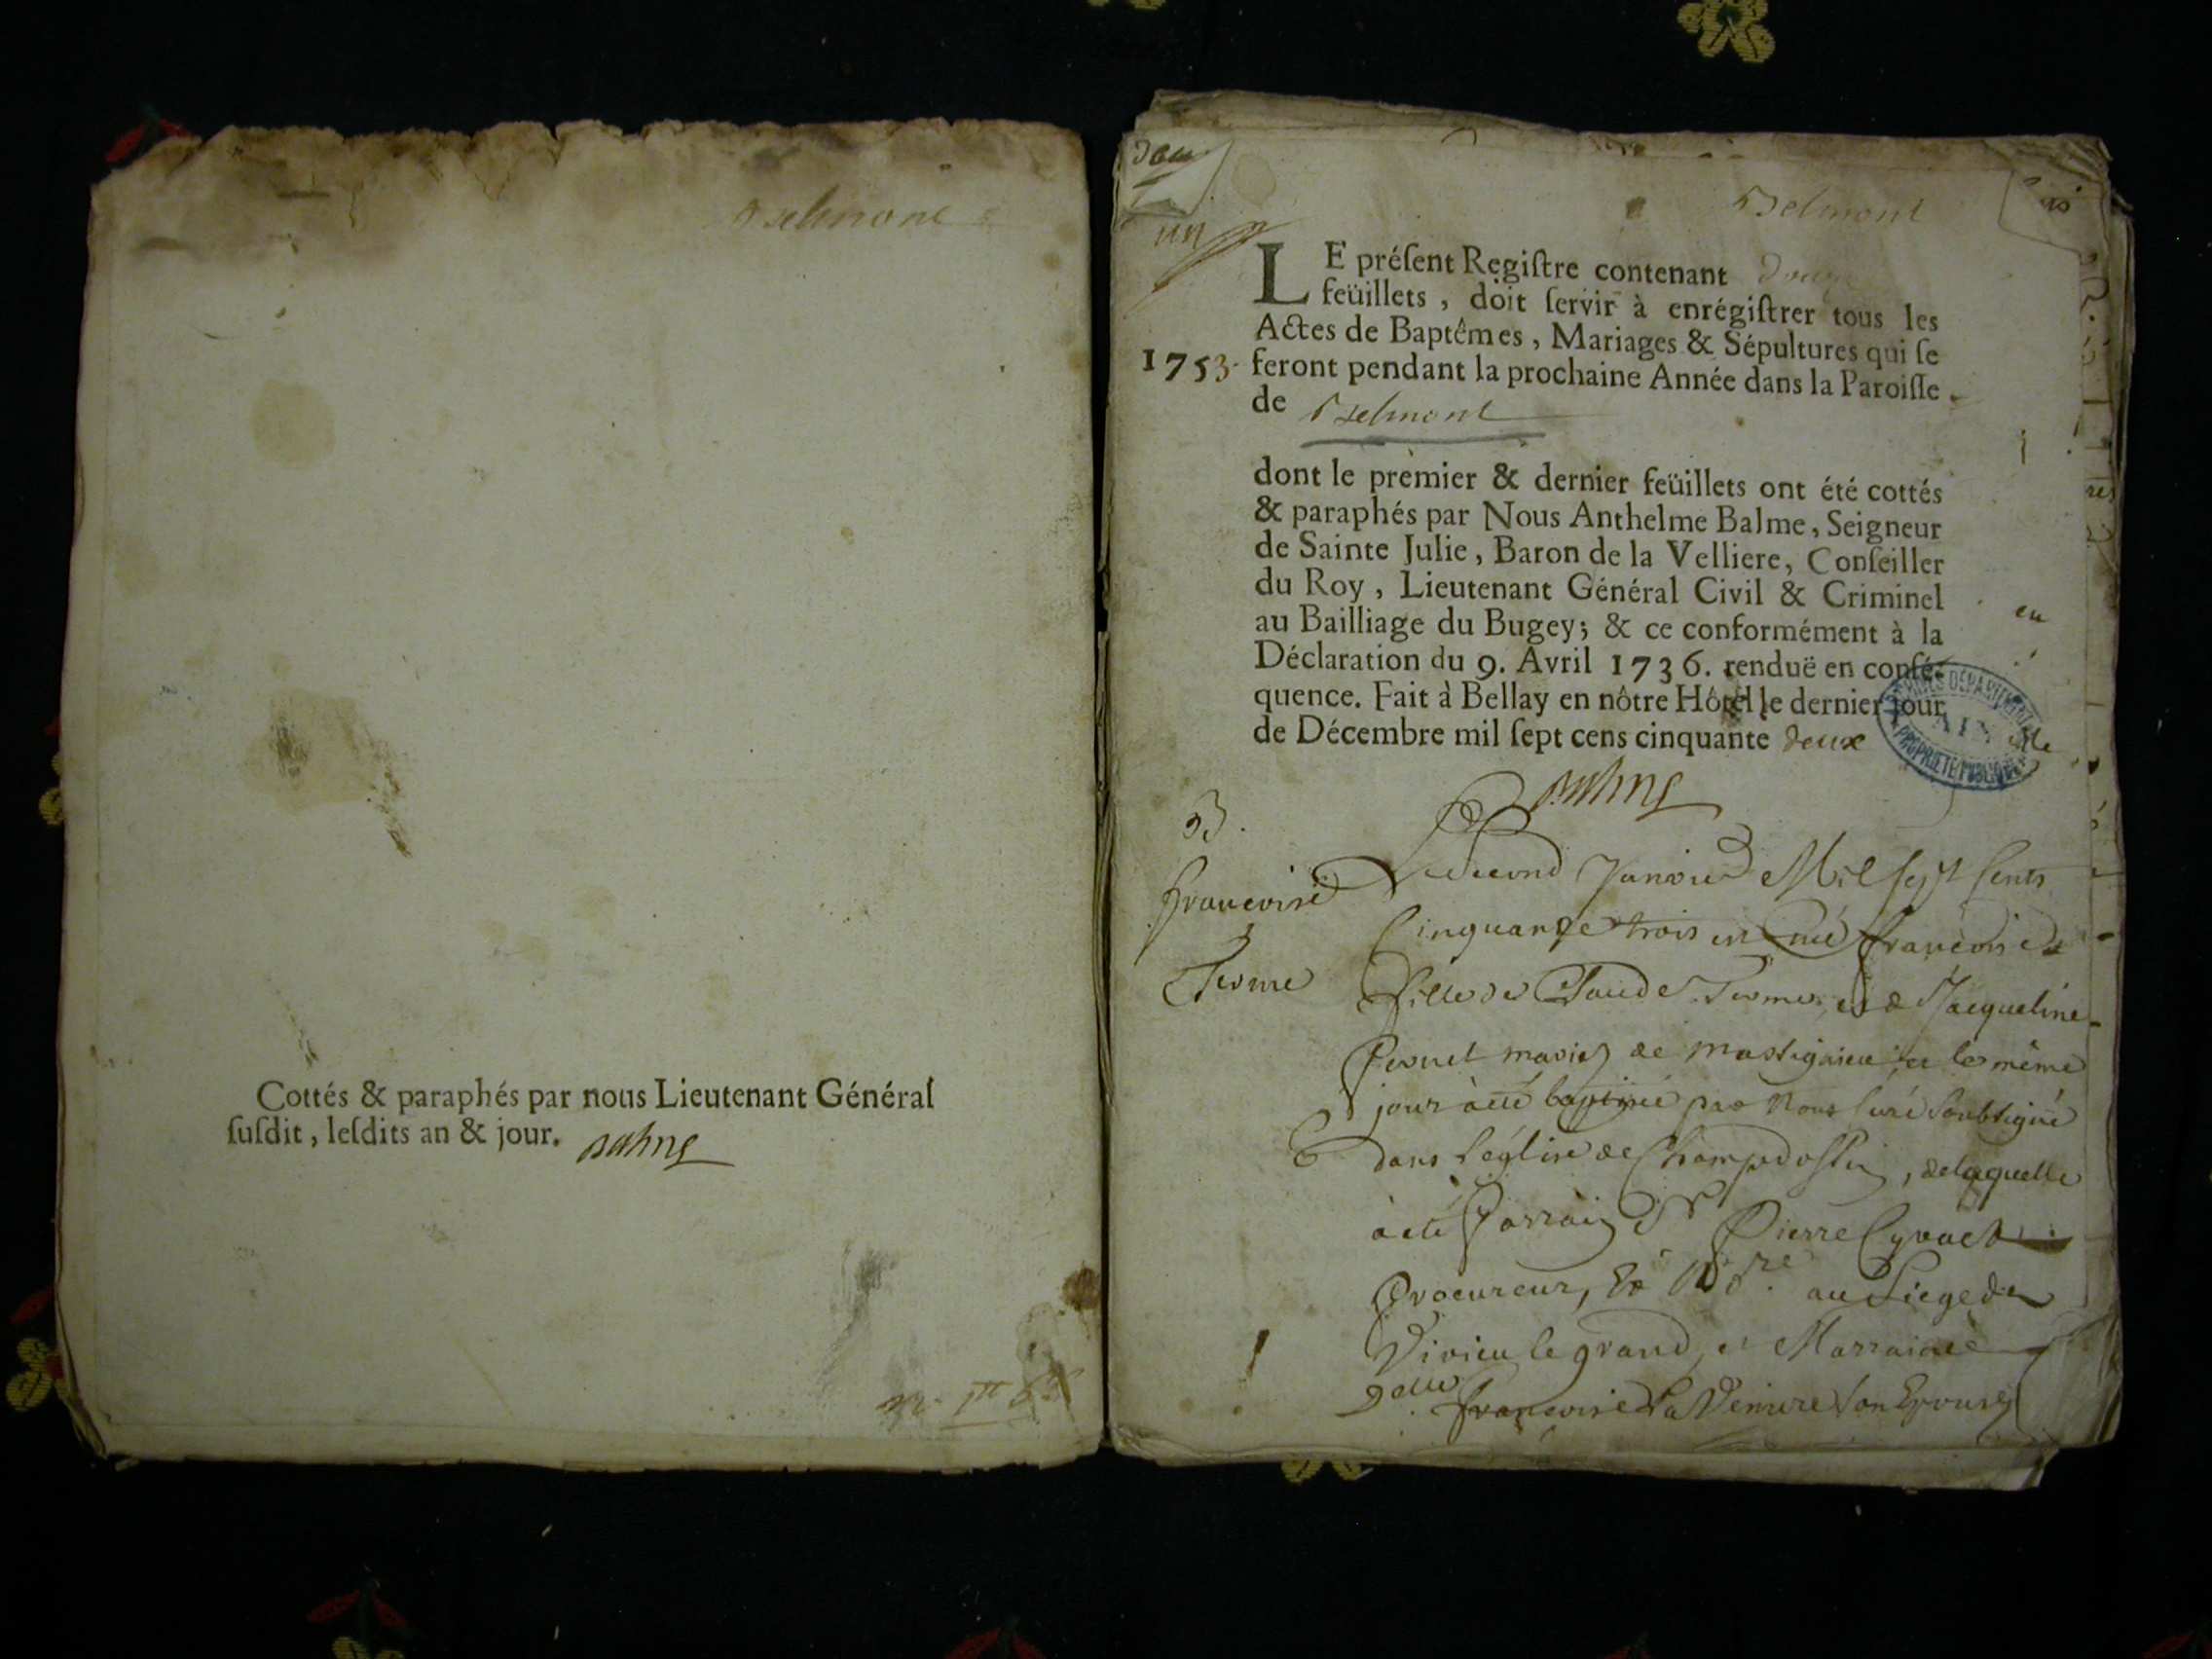 Belmont
Cottés & paraphés par nous Lieutenant Général
ſuſdit, leſdits an & jour. Balme
Belmont
un
LE préſent Regiſtre contenant douze
feüillets, doit ſervir à enrégiſtrer tous les
Actes de Baptêmes, Mariages & Sépultures qui ſe
1753. feront pendant la prochaine Année dans la Paroiſſe
de Belmont
dont le premier & dernier feüillets ont été cottés
& paraphés par Nous Anthelme Balme, Seigneur
de Sainte Julie, Baron de la Velliere, Conſeiller
du Roy, Lieutenant Général Civil & Criminel
au Bailliage du Bugey; & ce conformément à la
Déclaration du 9. Avril 1736. renduë en conſé-
quence. Fait à Bellay en nôtre Hôtel le dernier jour
de Décembre mil ſept cens cinquante deux
ARCHIVES DÉPARTEMENTALES
AIN
PROPRIÉTÉ PUBLIQUE
Balme
B.
françoise
Terme
Le second Janvier Mil sept cents
Cinquante trois est née françoise
fille de Claude Terme, et de Jacqueline
Pernet mariés de Massignieu, et le même
jour à été baptisée par Nous Curé soubsigné
dans l'église de Champdossin, de laquelle
à été Parrain Sr Pierre Cyvoct
Procureur, et Nore. au Siege de
Virieu le grand, et Marraine
Delle. françoise son Epouse